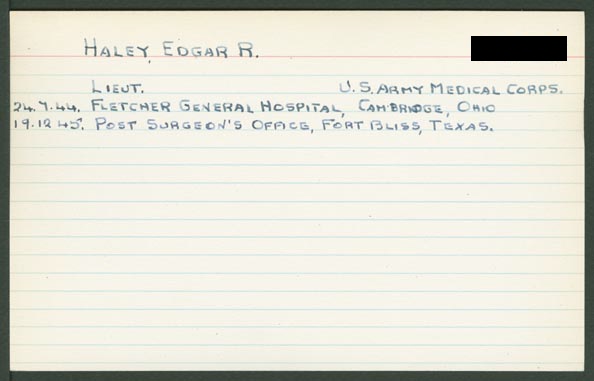 HALEY, EDGAR R.
LIEUT. U.S. ARMY MEDICAL CORPS.
24.7.44. FLETCHER GENERAL HOSPITAL, CAMBRIDGE, OHIO
19.12.45. POST SURGEON'S OFFICE, FORT BLISS, TEXAS.